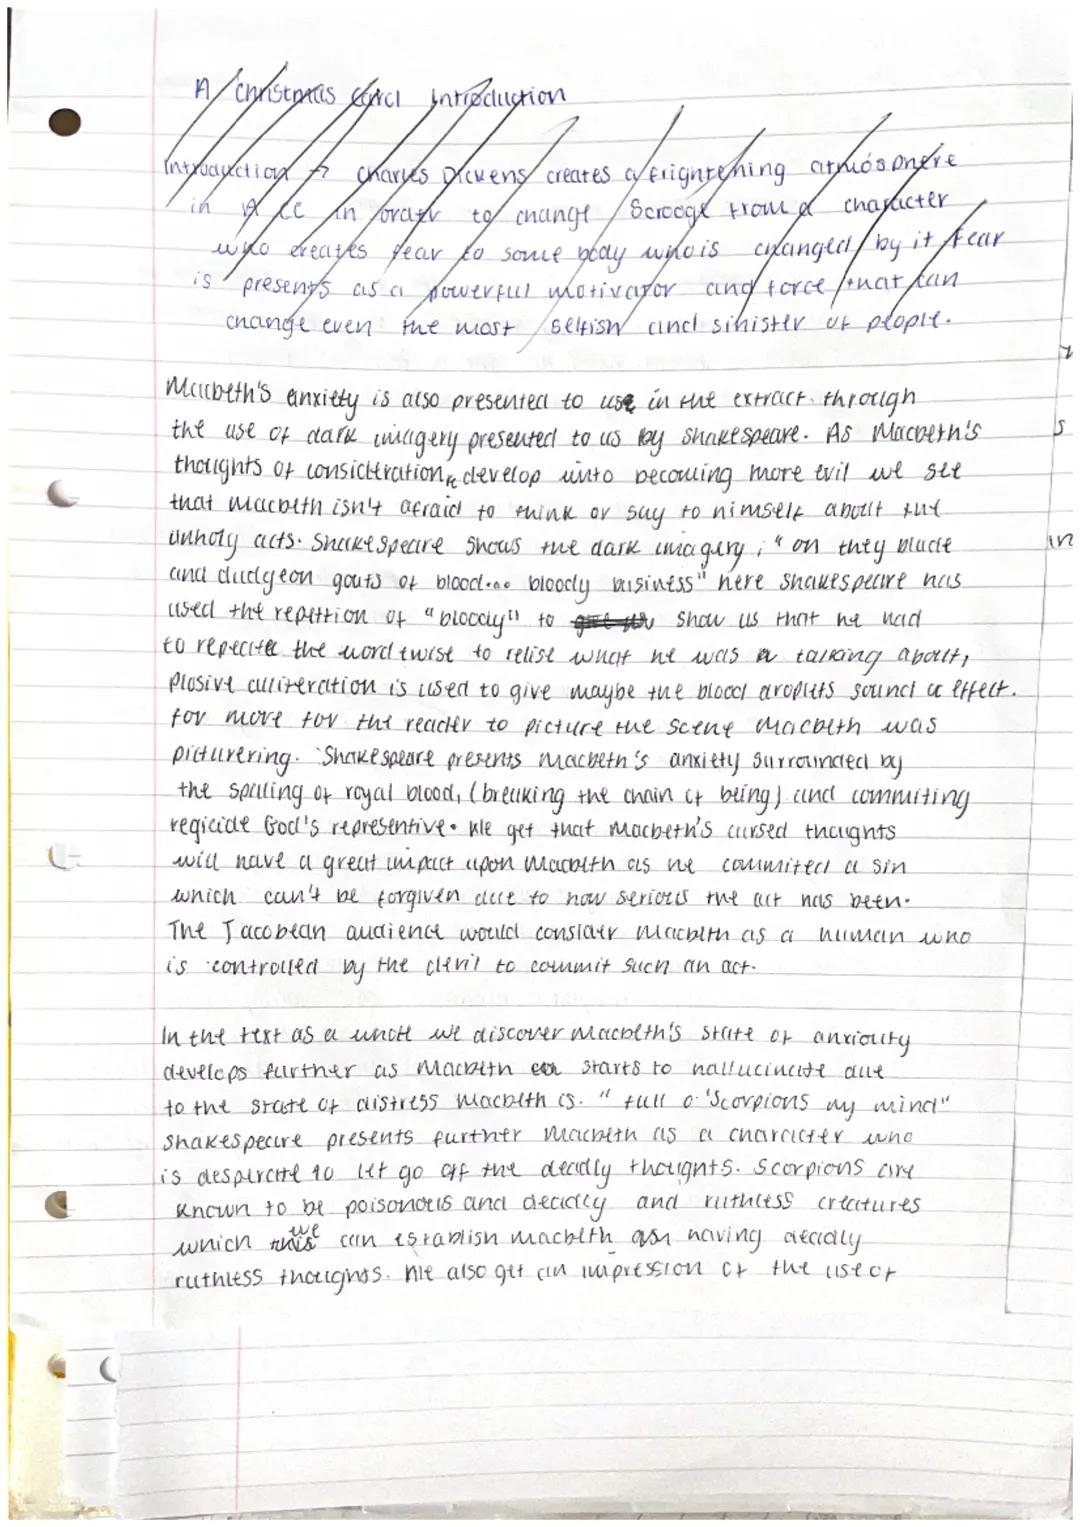 A Christmas Carol Introduction
Introduction → Charles Dickens creates a frightening atmosphere
in ACC in order to change Scrooge from a character
who creates fear to some body who is changed by it fear
is presents as a powerful motivator and force that can
change even the most selfish and sinister of people.
Macbeth's anxiety is also presented to use in the extract through
the use of dark imagery presented to us by Shakespeare. As Macbeth's
thoughts of consideration develop into becoming more evil we see
that Macbeth isn't afraid to think or say to himself about the
unholy acts. Shakespeare shows the dark imagery, "on they blade
and dudgeon gouts of blood... bloody business" here Shakespeare has
used the repetition of "bloody" to show us that he had
to repeate the word twise to relise what he was talking about,
Plosive alliteration is used to give maybe the blood droplets sound a effect.
for more for the reader to picture the scene Macbeth was
picturering. Shakespeare presents Macbeth's anxiety surrounded by
the spilling of royal blood, (breaking the chain of being) and commiting
regicide God's representive. We get that Macbeth's cursed thoughts
will have a great impact upon Macbeth as he commited a sin
which can't be forgiven due to how serious the act has been.
The Jacobean audience would consider Macbeth as a human who
is controlled by the devil to commit such an act.
In the text as a whole we discover Macbeth's state of anxiouity
develops further as Macbeth starts to hallucinate due
to the state of distress Macbeth is. "full o 'Scorpions my mind"
Shakespeare presents further Macbeth as a character who
is desperate to let go off the deadly thoughts. Scorpions are
known to be poisonous and deadly and ruthless creatures
which we can establish Macbeth having deadly
ruthless thoughts. We also get an impression of the use of
s
in